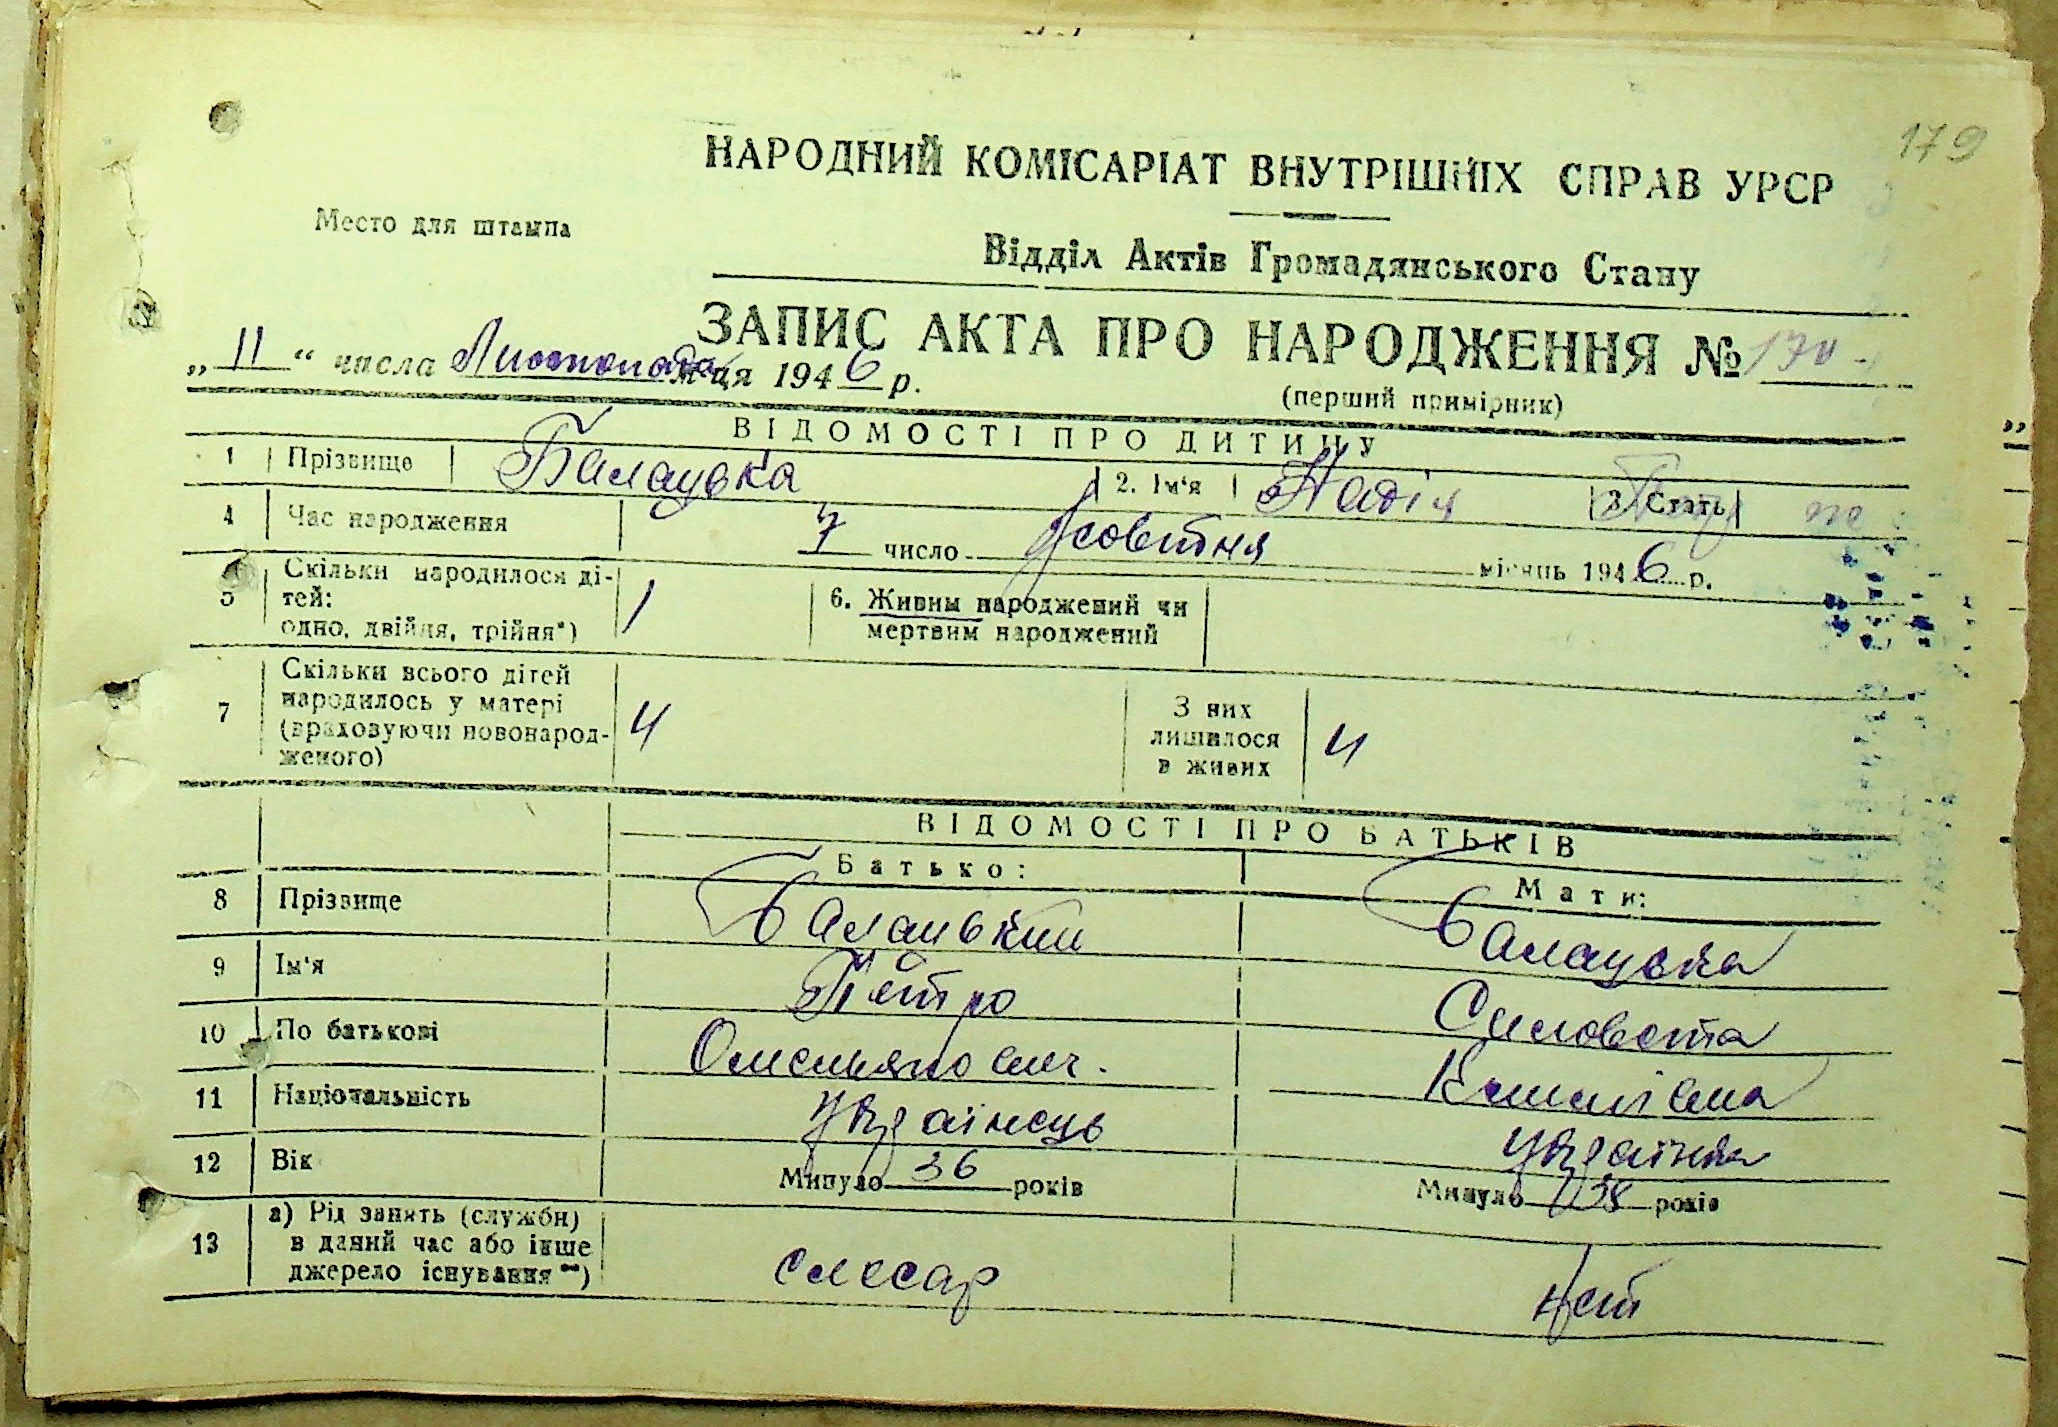 179
НАРОДНИЙ КОМІСАРІАТ ВНУТРІШНІХ СПРАВ УРСР
Место для штампа
Відділ Актів Громадянського Стану
ЗАПИС АКТА ПРО НАРОДЖЕННЯ № 170
„11“ числа Листопада м-ця 1946 р.
(перший примірник)
ВІДОМОСТІ ПРО ДИТИНУ
1 Прізвище Балацька 2. Ім'я Надія 3. Стать ж
4 Час народження 7 число Жовтня місяць 1946 р.
5 Скільки народилося ді-
тей:
одно, двійня, трійня*) 1
6. Живим народжений чи
мертвим народжений
7 Скільки всього дітей
народилось у матері
(враховуючи новонарод-
женого) 4
З них
лишилося
в живих 4
ВІДОМОСТІ ПРО БАТЬКІВ
Батько: Мати:
8 Прізвище Балацький Балацька
9 Ім'я Петро
10 По батькові Омельянович
11 Національність Українець Українка
12 Вік Минуло 36 років Минуло 38 років
13 а) Рід занять (служби)
в даний час або інше
джерело існування **) слесар нет